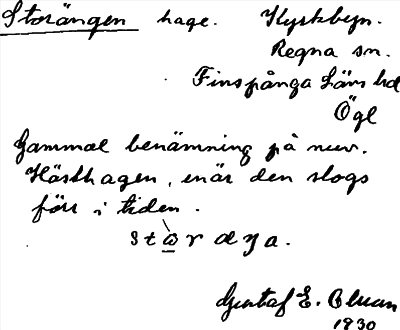 Storängen hage. Kyrkbyn.
Regna sn.
Finspånga Läns hd
Ögl
Gammal benämning på nuv.
Hästhagen, enär den slogs
förr i tiden.
stòræŋa.
Gustaf E. Olsson
1930